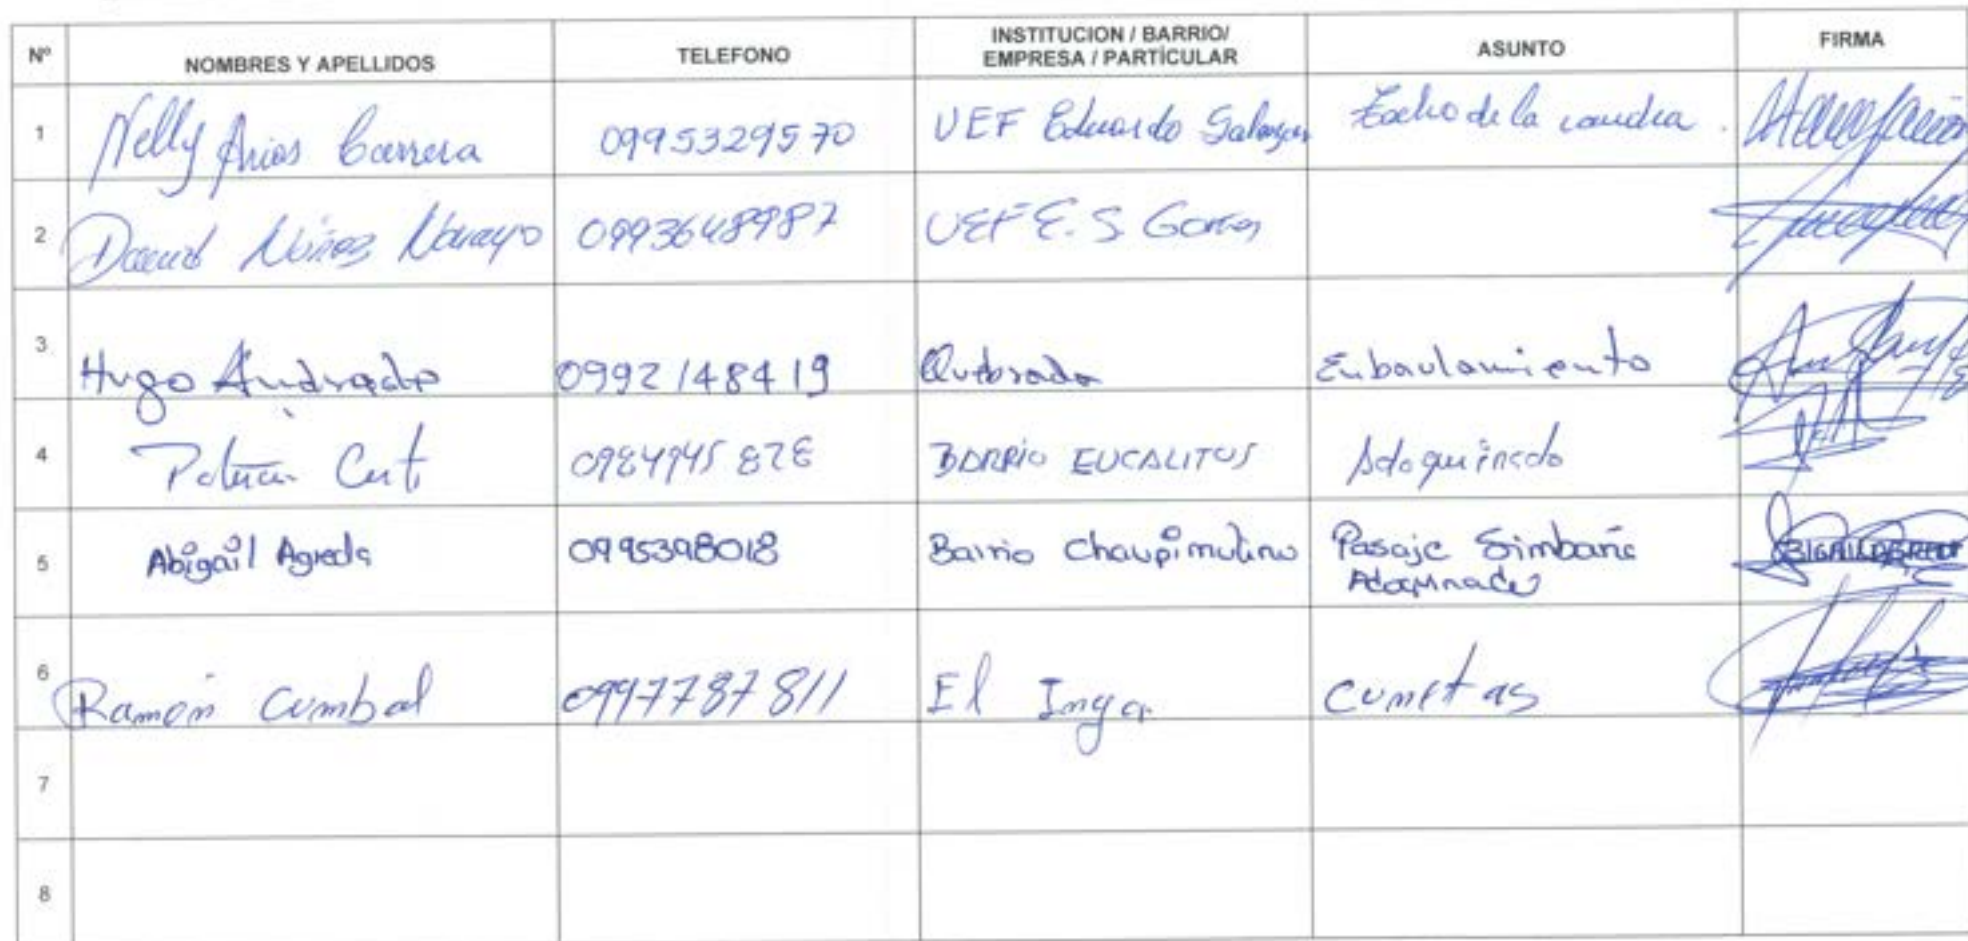 Nº NOMBRES Y APELLIDOS TELEFONO INSTITUCION / BARRIO/ EMPRESA / PARTÍCULAR ASUNTO FIRMA
1 Nelly Arias Carrera 0995329570 UEF Eduardo Salazar de la cancha.
2 David Núñez Naranjo 0993648987 UEF E. S. Gomez
3 Hugo Andrade 0992148419 Quebrada Enbaulamiento
4 0984945878 BARRIO EUCALITOS Adoquinado
5 Abigail Agreda 0995398018 Barrio Chaupimolino Pasaje Simbaña
Adoquinado
6 Ramón Cumbal 0997787811 El Inga Cunetas
7
8